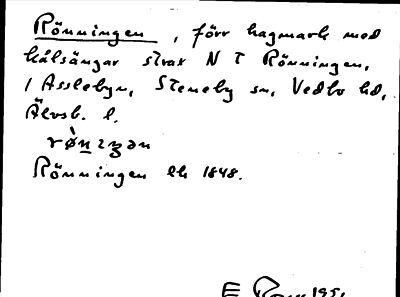 Rönningen, förr hagmark med
hålsängar strax N T Rönningen,
1 Asslebyn, Steneby sn, Vedbo hd,
Älvsb. l.
Rönningen lh 1848.
E